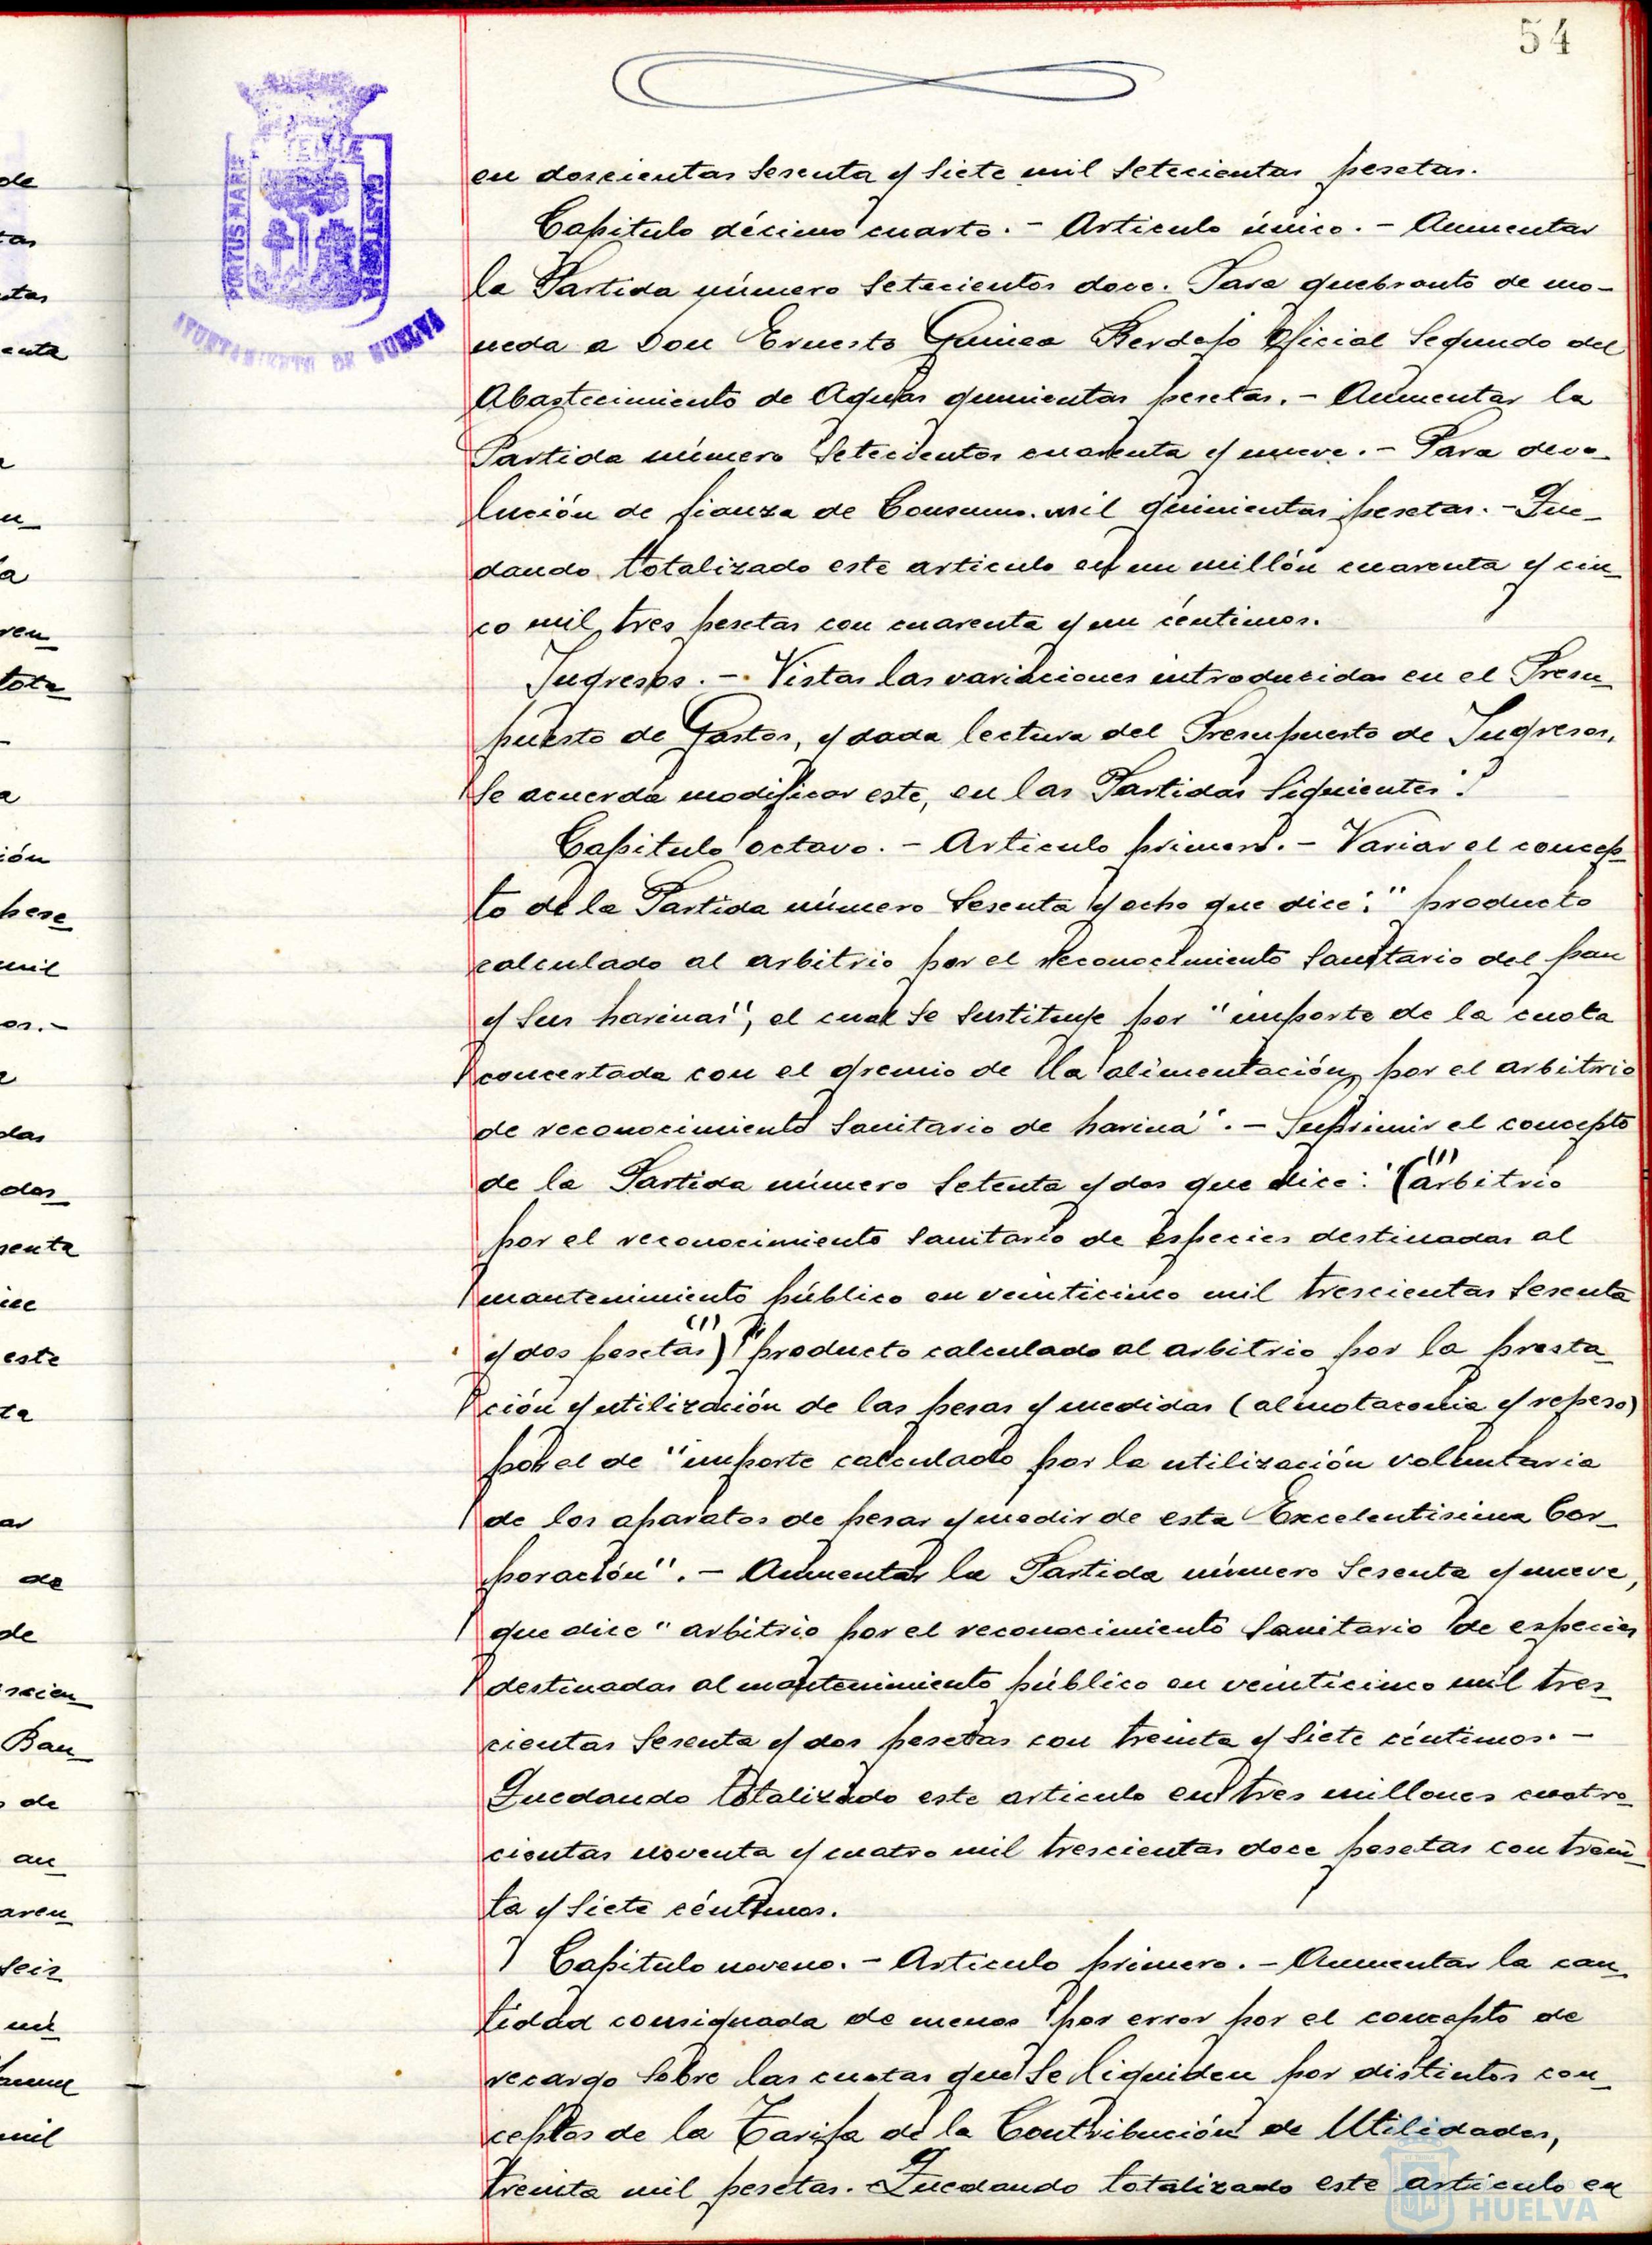 54
PORTUS MARIS
CUSTODIA
AYUNTAMIENTO DE HUELVA
en doscientas sesenta y siete mil setecientas pesetas.
Capitulo décimo cuarto. - Articulo único. - Aumentar
la Partida número setecientos doce. Para quebranto de mo-
neda a Don Ernesto Guinea Berdejo Oficial Segundo del
Abastecimiento de Aguas quinientas pesetas. - Aumentar la
Partida número setecientos cuarenta y nueve. - Para devo-
lución de fianza de Consumo. mil quinientas pesetas. - Que-
dando totalizado este articulo en un millón cuarenta y cin-
co mil tres pesetas con cuarenta y un céntimos.
Ingresos. - Vistas las variaciones introducidas en el Presu-
puesto de Gastos, y dada lectura del Presupuesto de Ingresos,
se acuerda modificar este, en las Partidas siguientes:
Capitulo octavo. - Articulo primero. - Variar el concep-
to de la Partida número sesenta y ocho que dice: "producto
calculado al arbitrio por el reconocimiento sanitario del pan
y sus harinas", el cual se sustituye por "importe de la cuota
concertada con el gremio de la alimentación, por el arbitrio
de reconocimiento sanitario de harina". - Suprimir el concepto
de la Partida número setenta y dos que dice: "(arbitrio
(1)
por el reconocimiento sanitario de especies destinadas al
mantenimiento público en veinticinco mil trescientas sesenta
y dos pesetas) "producto calculado al arbitrio por la presta-
(1)
ción y utilización de las pesas y medidas (almotacenia y repeso)
por el de "importe calculado por la utilización voluntaria
de los aparatos de pesar y medir de esta Excelentisima Cor-
poración". - Aumentar la Partida número sesenta y nueve,
que dice "arbitrio por el reconocimiento sanitario de especies
destinadas al mantenimiento público en veinticinco mil tres-
cientas sesenta y dos pesetas con treinta y siete céntimos. -
Quedando totalizado este articulo en tres millones cuatro-
cientas noventa y cuatro mil trescientas doce pesetas con trein-
ta y siete céntimos.
Capitulo noveno. - Articulo primero. - Aumentar la can-
tidad consignada de menos por error por el concepto de
recargo sobre las cuotas que se liquiden por distintos con-
ceptos de la Tarifa de la Contribución de Utilidades,
treinta mil pesetas. Quedando totalizado este articulo en
HUELVA